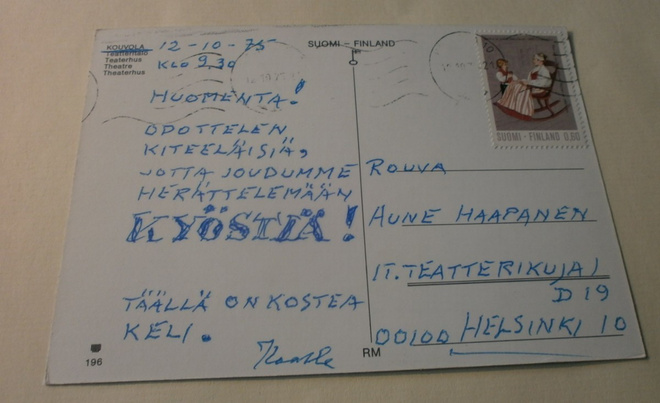 KOUVOLA
Teatteritalo
Teaterhus
Theatre
Theaterhus
12-10-75
KLO 9.30
SUOMI - FINLAND
SUOMI - FINLAND 0,60
HUOMENTA!
ODOTTELEN
KITEELÄISIÄ,
JOTTA JOUDUMME
HERÄTTELEMÄÄN
KYÖSTIÄ!
TÄÄLLÄ ON KOSTEA
KELI.
ROUVA
AUNE HAAPANEN
IT. TEATTERIKUJA 1
D 19
00100 HELSINKI 10
196
RM